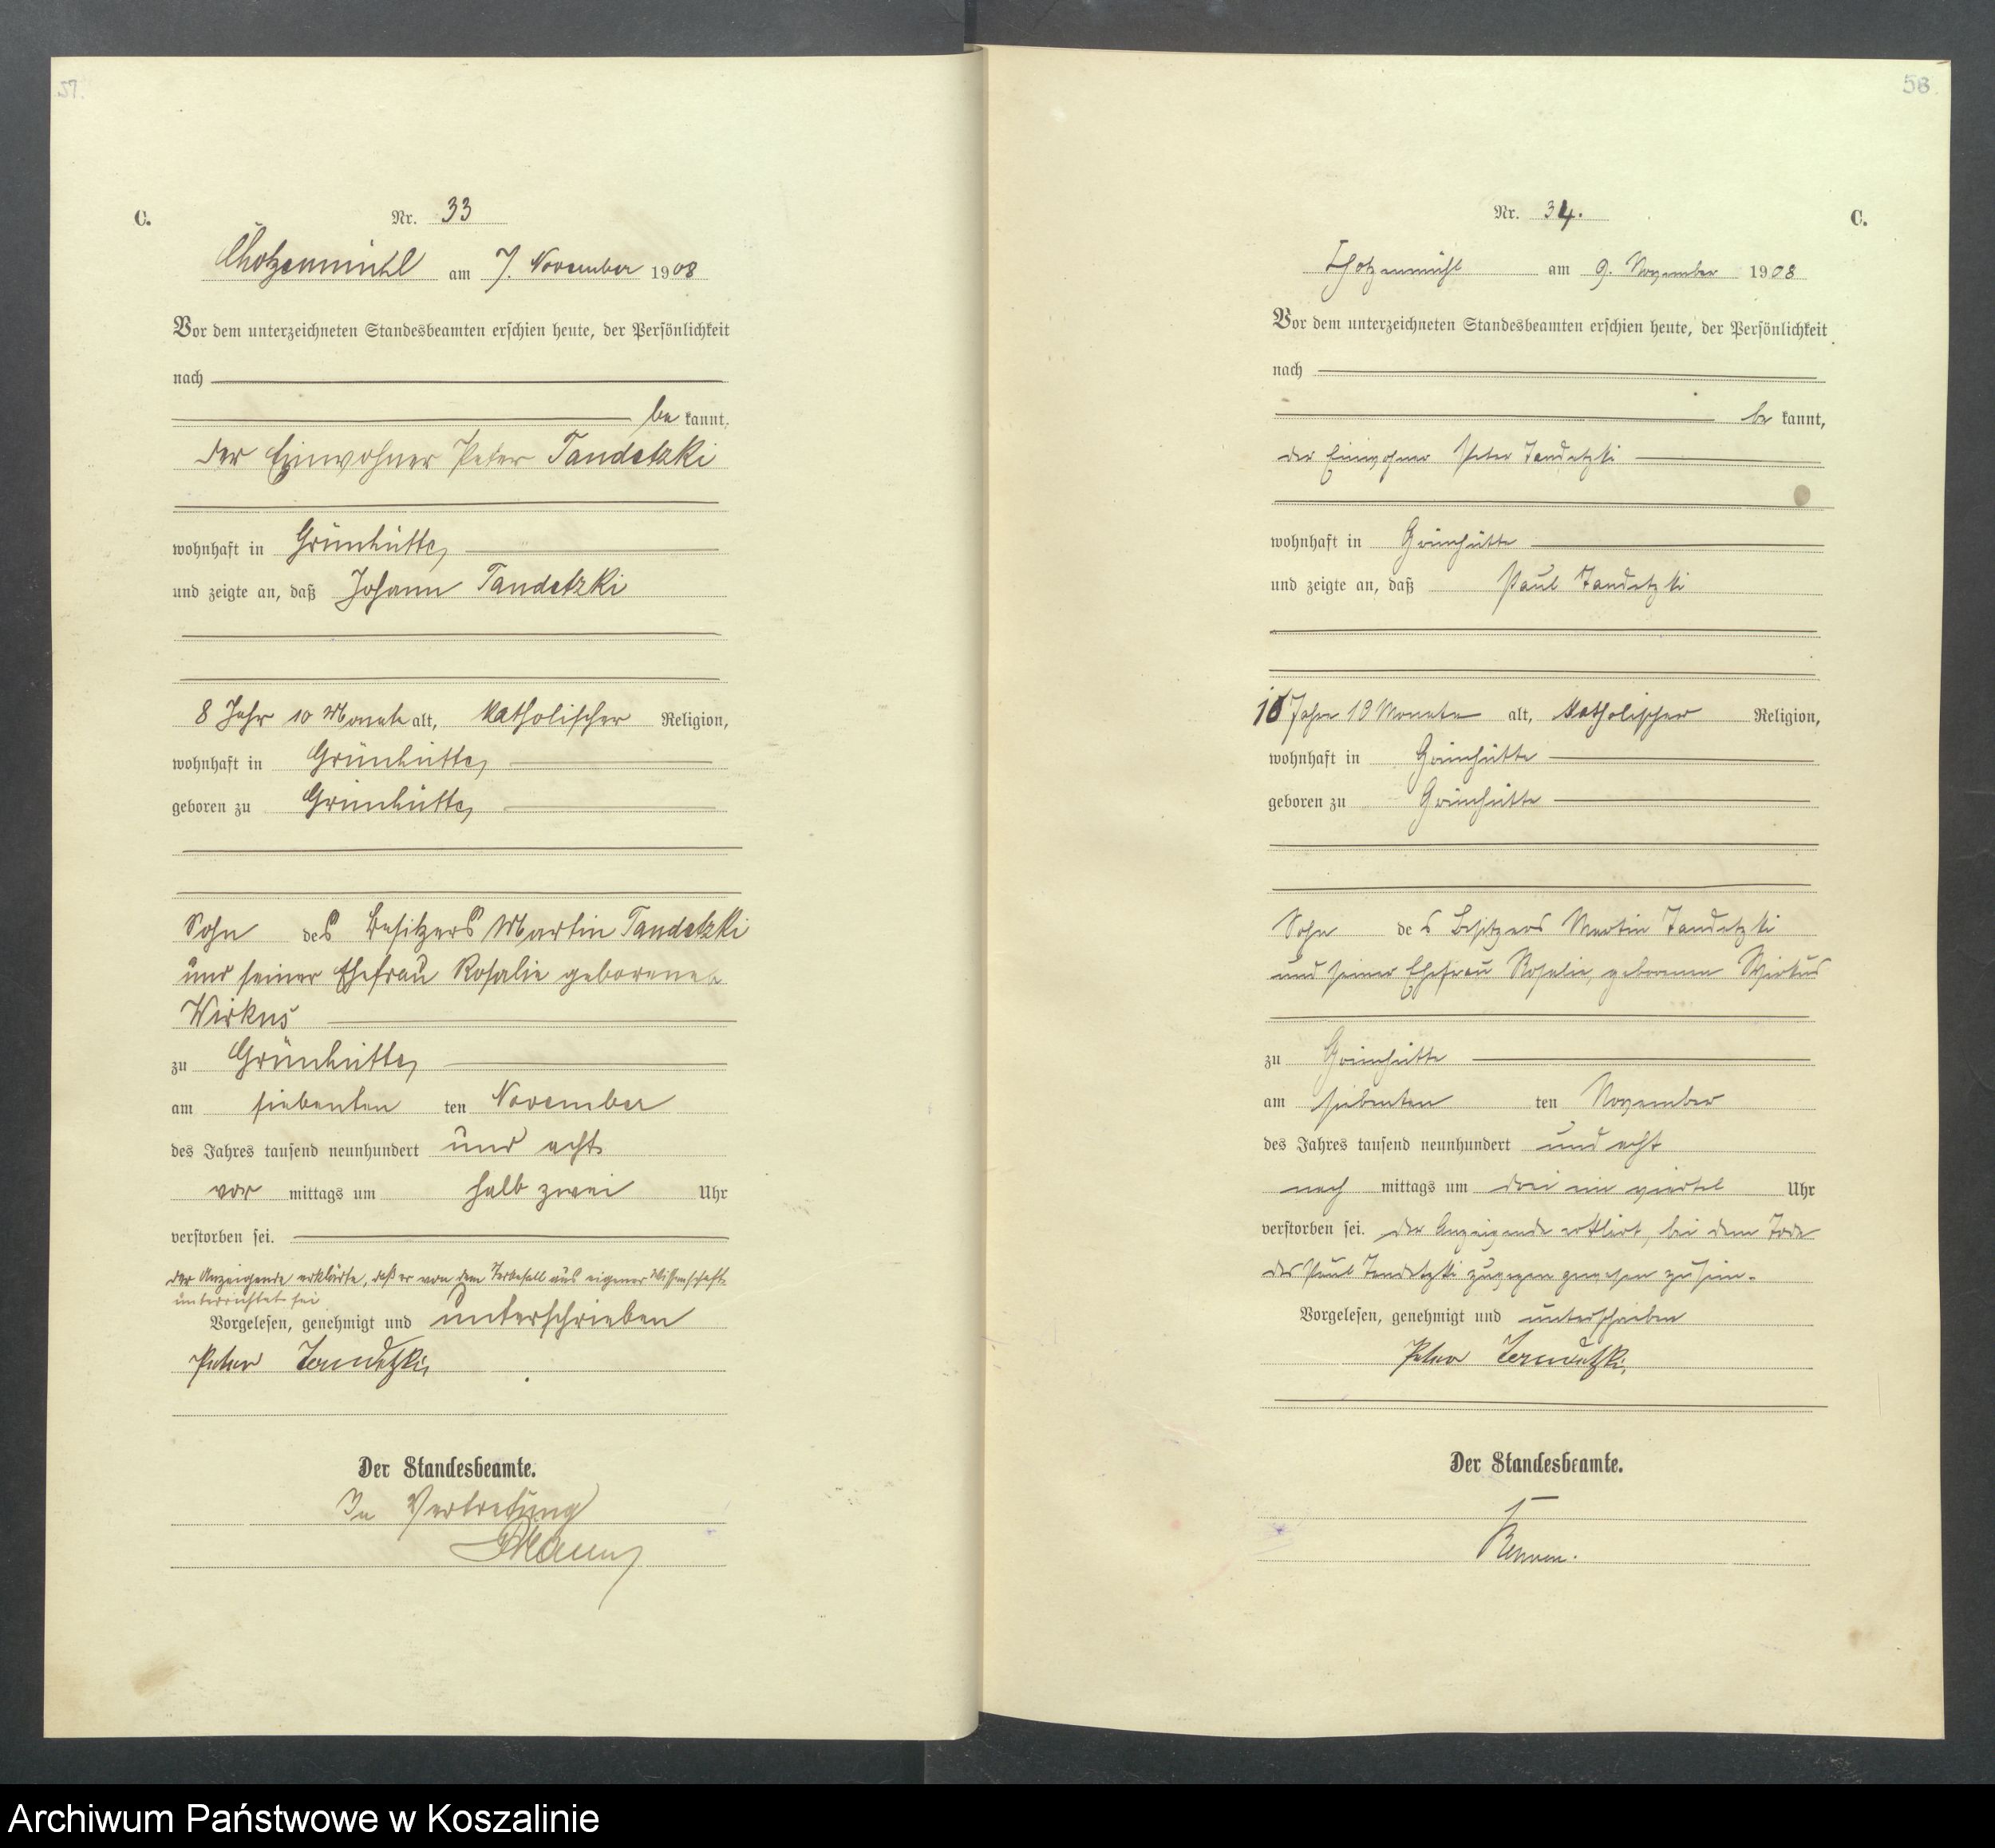 57.
C.
Nr. 33
Chotzenmühl am 7. November 1908
Vor dem unterzeichneten Standesbeamten erschien heute, der Persönlichkeit
nach
be kannt,
der Einwohner Peter Tandetzki
wohnhaft in Grünhütte,
und zeigte an, daß Johann Tandetzki
8 Jahr 10 Monate alt, katholischer Religion,
wohnhaft in Grünhütte,
geboren zu Grünhütte,
Sohn des Besitzers Martin Tandetzki
und seiner Ehefrau Rosalie geborene
Wirkus
zu Grünhütte,
am siebenten ten November
des Jahres tausend neunhundert und acht
vor mittags um halb zwei Uhr
verstorben sei.
der Anzeigende erklärte, daß er von dem Sterbefall aus eigener Wissenschaft
unterrichtet sei
Vorgelesen, genehmigt und unterschrieben
Peter Tandetzki,
Der Standesbeamte.
In Vertretung
58.
Nr. 34.
C.
Chotzenmühl am 9. November 1908
Vor dem unterzeichneten Standesbeamten erschien heute, der Persönlichkeit
nach
be kannt,
der Einwohner Peter Tandetzki
wohnhaft in Grünhütte
und zeigte an, daß Paul Tandetzki
Jahre 10 Monate alt, katholischer Religion,
wohnhaft in Grünhütte
geboren zu Grünhütte
Sohn des Besitzers Martin Tandetzki
und seiner Ehefrau Rosalie, geborenen Wirkus
zu Grünhütte
am siebenten ten November
des Jahres tausend neunhundert und acht
nach mittags um drei ein viertel Uhr
verstorben sei. der Anzeigende erklärt, bei dem Tode
des Paul Tandetzki zugegen gewesen zu sein.
Vorgelesen, genehmigt und unterschrieben
Peter Tandetzki,
Der Standesbeamte.
Archiwum Państwowe w Koszalinie